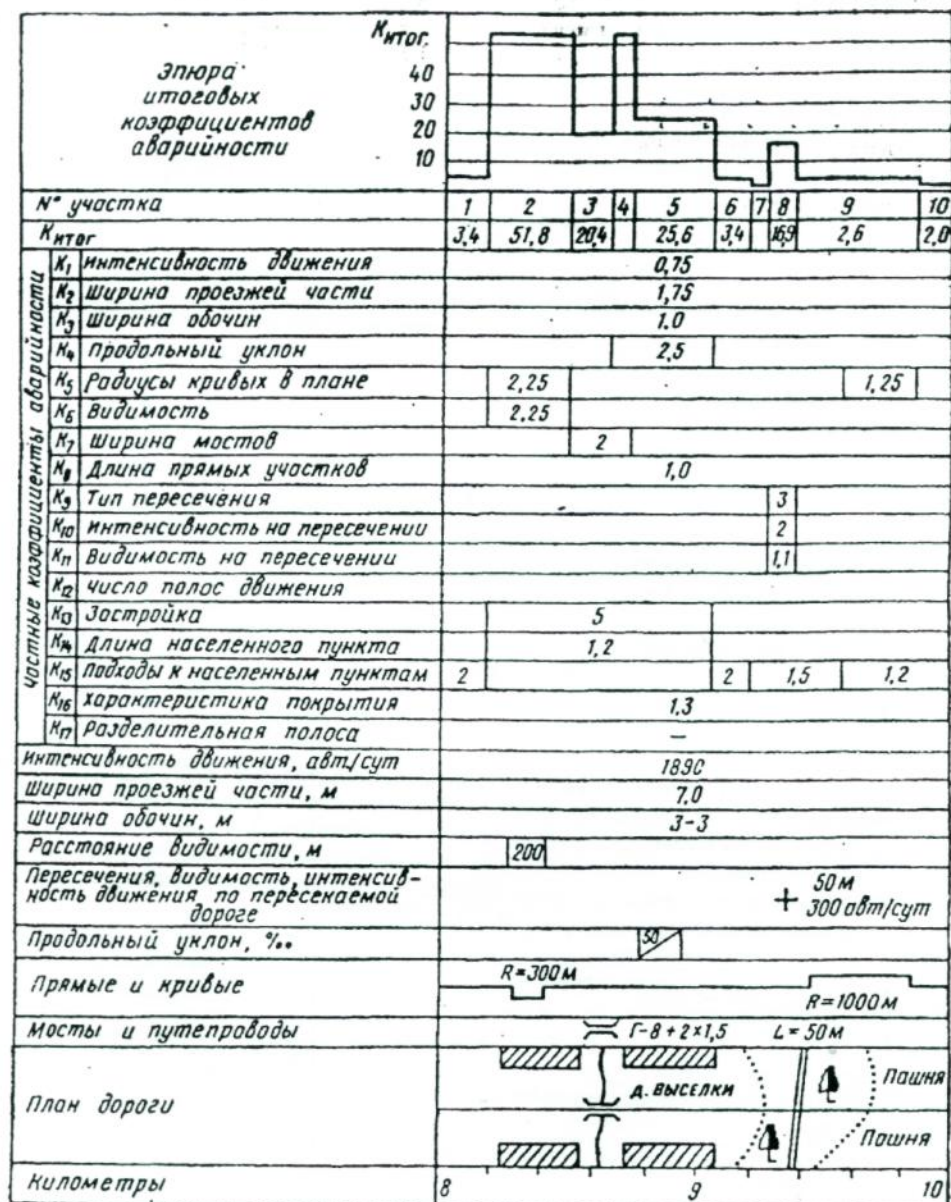 Эпюра
итоговых
коэффициентов
аварийности
Kитог.
40
30
20
10
N° участка 1 2 3 4 5 6 7 8 9 10
Kитог 3,4 51,8 20,4 25,6 3,4 16,9 2,6 2,0
Частные коэффициенты аварийности
K1 Интенсивность движения 0,75
K2 Ширина проезжей части 1,75
K3 Ширина обочин 1.0
K4 Продольный уклон 2,5
K5 Радиусы кривых в плане 2,25 1,25
K6 Видимость 2,25
K7 Ширина мостов 2
K8 Длина прямых участков 1,0
K9 Тип пересечения 3
K10 Интенсивность на пересечении 2
K11 Видимость на пересечении 1,1
K12 Число полос движения
K13 Застройка 5
K14 Длина населенного пункта 1,2
K15 Подходы к населенным пунктам 2 2 1,5 1,2
K16 Характеристика покрытия 1,3
K17 Разделительная полоса —
Интенсивность движения, авт/сут 1890
Ширина проезжей части, м 7,0
Ширина обочин, м 3-3
Расстояние видимости, м 200
Пересечения, видимость, интенсив-
ность движения по пересекаемой
дороге
50 м
300 авт/сут
Продольный уклон, ‰ 50
Прямые и кривые R=300м R=1000м
Мосты и путепроводы Г-8+2×1,5 L=50м
План дороги д. Выселки Пашня
Пашня
Километры 8 9 10